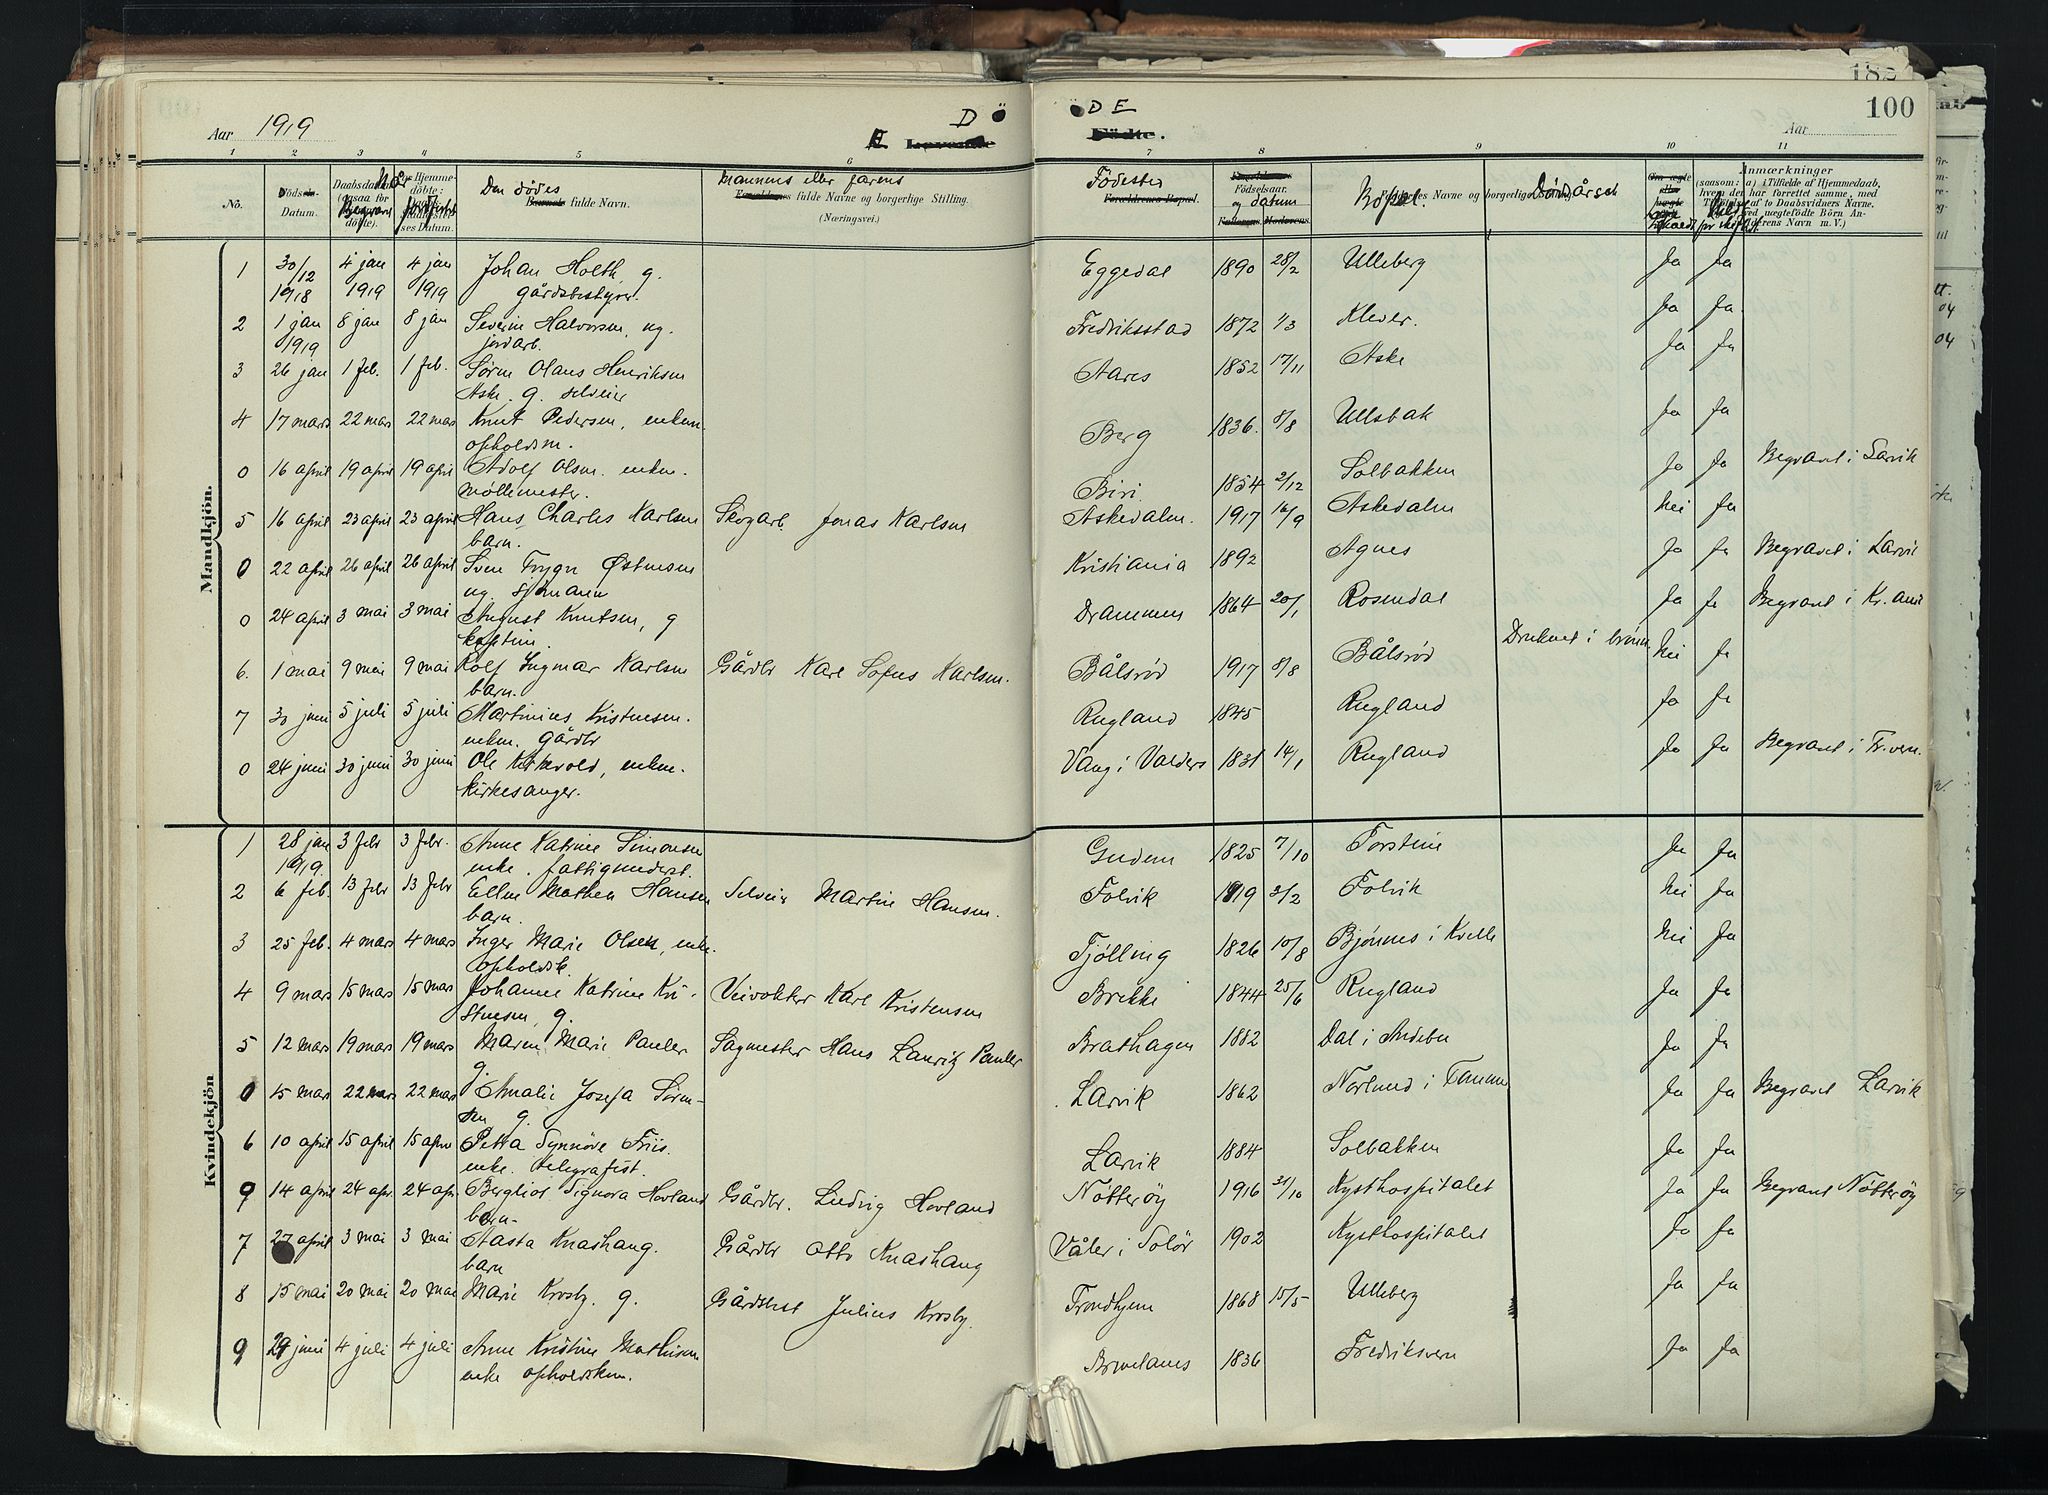 Aar 1919
D Ö
Ö D E
100
Aar
1 2 3 4 5 6 7 8 9 10 11
No. Datum. Den dødes fulde Navn. Mannens eller farens fulde Navne og borgerlige Stilling. (Næringsvei.) Fødested Fødselsaar. og datum Bopæl. Dødsårsak Anmærkninger
Mandkjön.
1 30/12 1918 4 jan 1919 4 jan 1919 Johan Holth, g. gårdsbestyrer. Eggedal 1890 28/2 Ulleberg Ja Ja
2 1 jan 1919 8 jan 8 jan Severin Halvorsen, ug. jordarb. Fredriksstad 1872 1/3 Klever. Ja Ja
3 26 jan 1 feb. 1 feb. Sørm Olaus Henriksen Aske. g. selveier Aares 1852 17/11 Aske Ja Ja
4 17 mars 22 mars 22 mars Knut Pedersen, enkem. opholdsm. Berg 1836. 8/8 Ullsbak Ja Ja
0 16 april 19 april 19 april Adolf Olsen. enkm. Møllemester. Biri. 1854 2/12 Solbakken Ja Ja Begravet i Larvik
5 16 april 23 april 23 april Hans Charles Karlsen barn. Skogarb. Jonas Karlsen Askedalen. 1917 16/9 Askedalen Nei Ja
0 22 april 26 april 26 april Sven Trygve Østensen ug. sjømann Kristiania 1892 Agnes Ja Ja Begravet i Larvik
0 24 april 3 mai 3 mai August Knutsen, g kaptein. Drammen 1864 20/1 Rosendal Ja Ja Begravet i Kr.ania
6. 1 mai 9 mai 9 mai Rolf Ingmar Karlsen barn. Gårdbr Karl Sofus Karlsen. Bålsrød 1917 8/8 Bålsrød Druknet i brønn Nei Ja
7 30 juni 5 juli 5 juli Martinius Kristensen. enkm. gårdbr Rugland 1845 Rugland Ja Ja
0 24 juni 30 juni 30 juni Ole Kirkevold, enkem. Kirkesanger. Vang i Valders 1831 14/1 Rugland Ja Ja Begravet i Fr.vern.
Kvindekjön
1 28 jan 1919. 3 febr 3 febr. Anne Katrine Simonsen enke. fattigunderst. Gudem 1825 7/10 Torstein Ja Ja
2 6 feb. 13 febr 13 febr Ellen Mathea Hansen barn. Selveier Martin Hansen. Folvik 1919 3/2 Folvik Nei Ja
3 25 feb. 4 mars 4 mars Inger Marie Olsen, enke. opholdsk. Tjølling 1826 10/8 Bjønnes i Kvelle Nei Ja
4 9 mars 15 mars 15 mars Johanne Katrine Kristensen, g. Veivokter Karl Kristensen Brekke 1844 25/6 Rugland Ja Ja
5 12 mars 19 mars 19 mars Maren Marie Pauler g. Sagmester Hans Lauritz Pauler Brathagen 1882 Dal i Andebu Ja Ja
0 15 mars 22 mars 22 mars Amalie Josefa Sørensen g. Larvik 1862 Norlund i Tanum Ja Ja Begravet Larvik
6 10 april 15 april 15 april Petra Synnöve Friis. enke. telegrafist. Larvik 1884 Solbakken Ja Ja
0 14 april 24 apr. 24 apr. Bergliot Signora Hovland barn. Gårdbr. Ludvig Hovland Nötterøy 1916 31/10 Kysthospitalet Ja Ja Begravet Nötterøy
7 27 april 3 mai 3 mai Aasta Knashaug. barn Gårdbr Otto Knashaug Våler i Solör 1902 Kysthospitalet Ja Ja
8 15 mai 20 mai 20 mai Marie Krosby. g. Gårdsbest Julius Krosby. Trondhjem 1868 15/5 Ulleberg Ja Ja
9 29 juni 4 juli 4 juli Anne Kristine Mathisen enke opholdskm. Brunlanes 1836 Fredriksvern Ja Ja